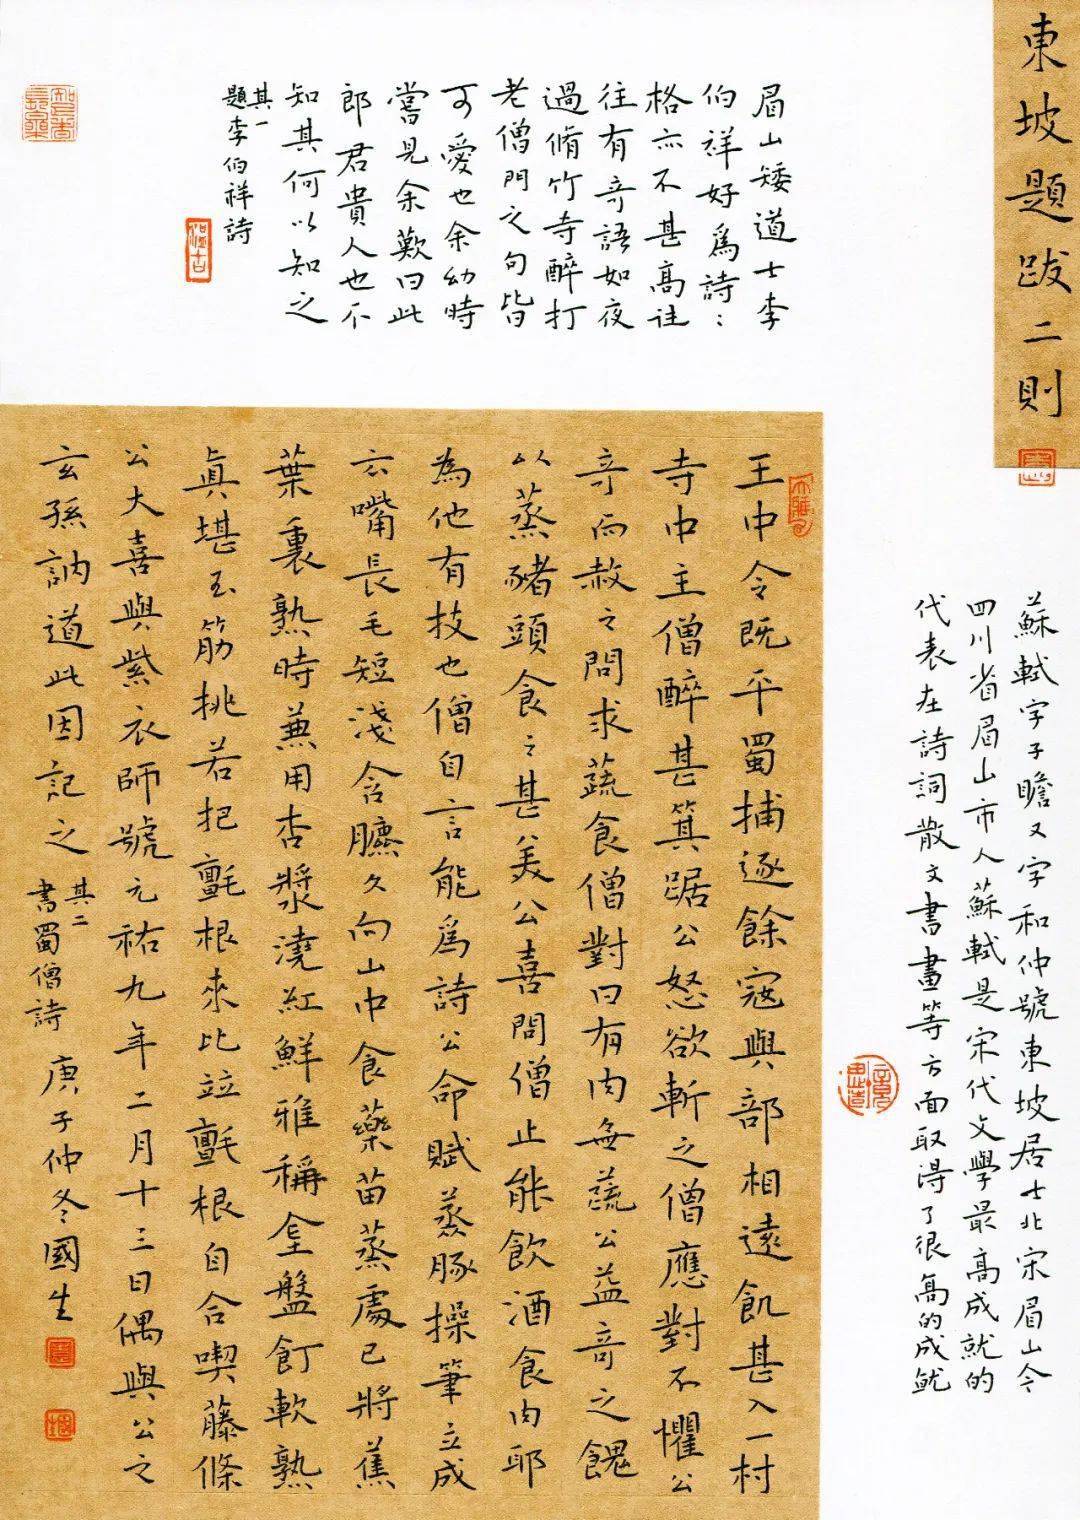 東坡題跋二則
眉山矮道士李
伯祥好爲詩〻
格亦不甚高往
往有奇語如夜
過脩竹寺醉打
老僧門之句皆
可愛也余幼時
嘗見余歎曰此
郎君貴人也不
知其何以知之
其一
題李伯祥詩
王中令既平蜀捕逐餘寇與部相遠飢甚入一村
寺中主僧醉甚箕踞公怒欲斬之僧應對不懼公
奇而赦之問求蔬食僧對曰有肉無蔬公益奇之餽
以蒸豬頭食之甚美公喜問僧止能飲酒食肉耶
為他有技也僧自言能爲詩公命賦蒸豚操筆立成
云嘴長毛短淺含臕久向山中食藥苗蒸處已將蕉
葉裹熟時兼用杏漿澆紅鮮雅稱金盤飣軟熟
眞堪玉筯挑若把氈根來比竝氈根自合喫藤條
公大喜與紫衣師號元祐九年二月十三日偶與公之
玄孫訥道此因記之
其二
書蜀僧詩
庚子仲冬國生
蘇軾字子瞻又字和仲號東坡居士北宋眉山今
四川省眉山市人蘇軾是宋代文學最高成就的
代表在詩詞散文書畫等方面取得了很高的成就